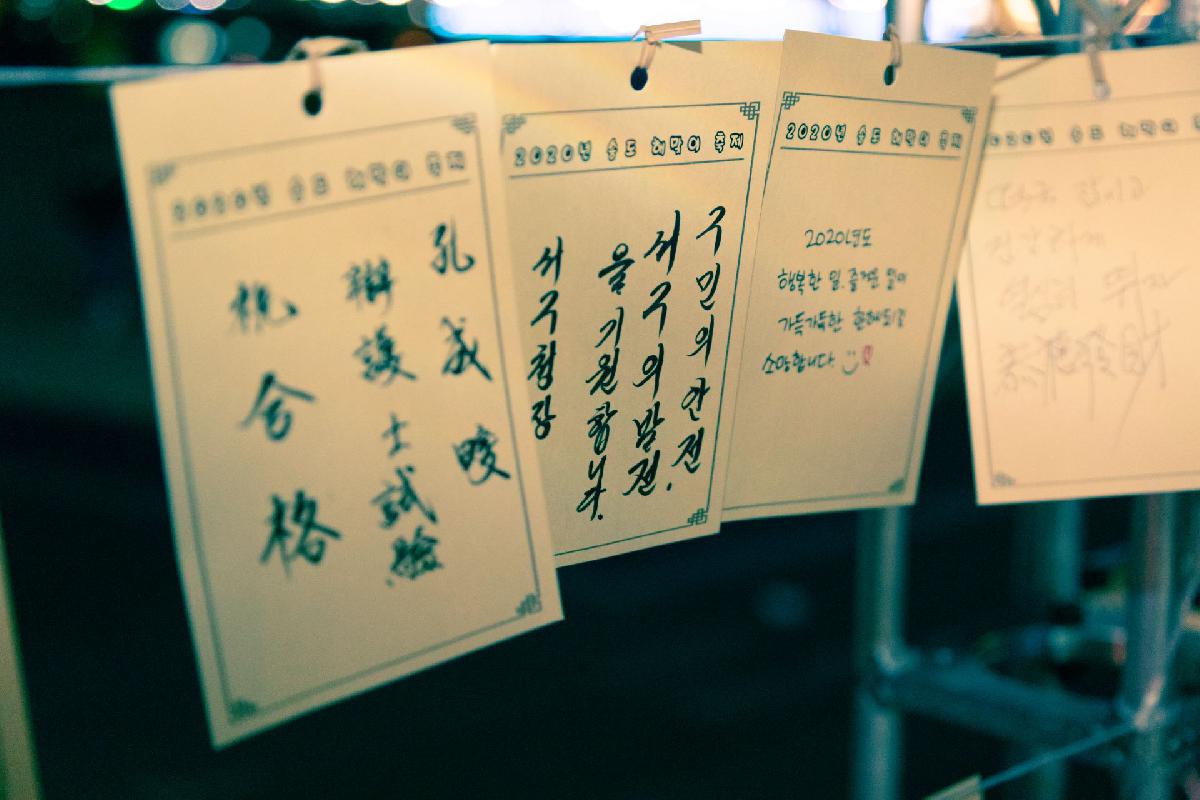 2020년 송도 해맞이 축제
孔成晙
辯護士試驗
祝合格
2020년 송도 해맞이 축제
구민의 안전,
서구의 발전
을 기원합니다.
서구청장
2020년 송도 해맞이 축제
2020년도
행복한 일, 즐거운 일이
가득가득한 한해되길
소망합니다.
2020년 송도 해맞이 축
건강하게
열심히 뛰자